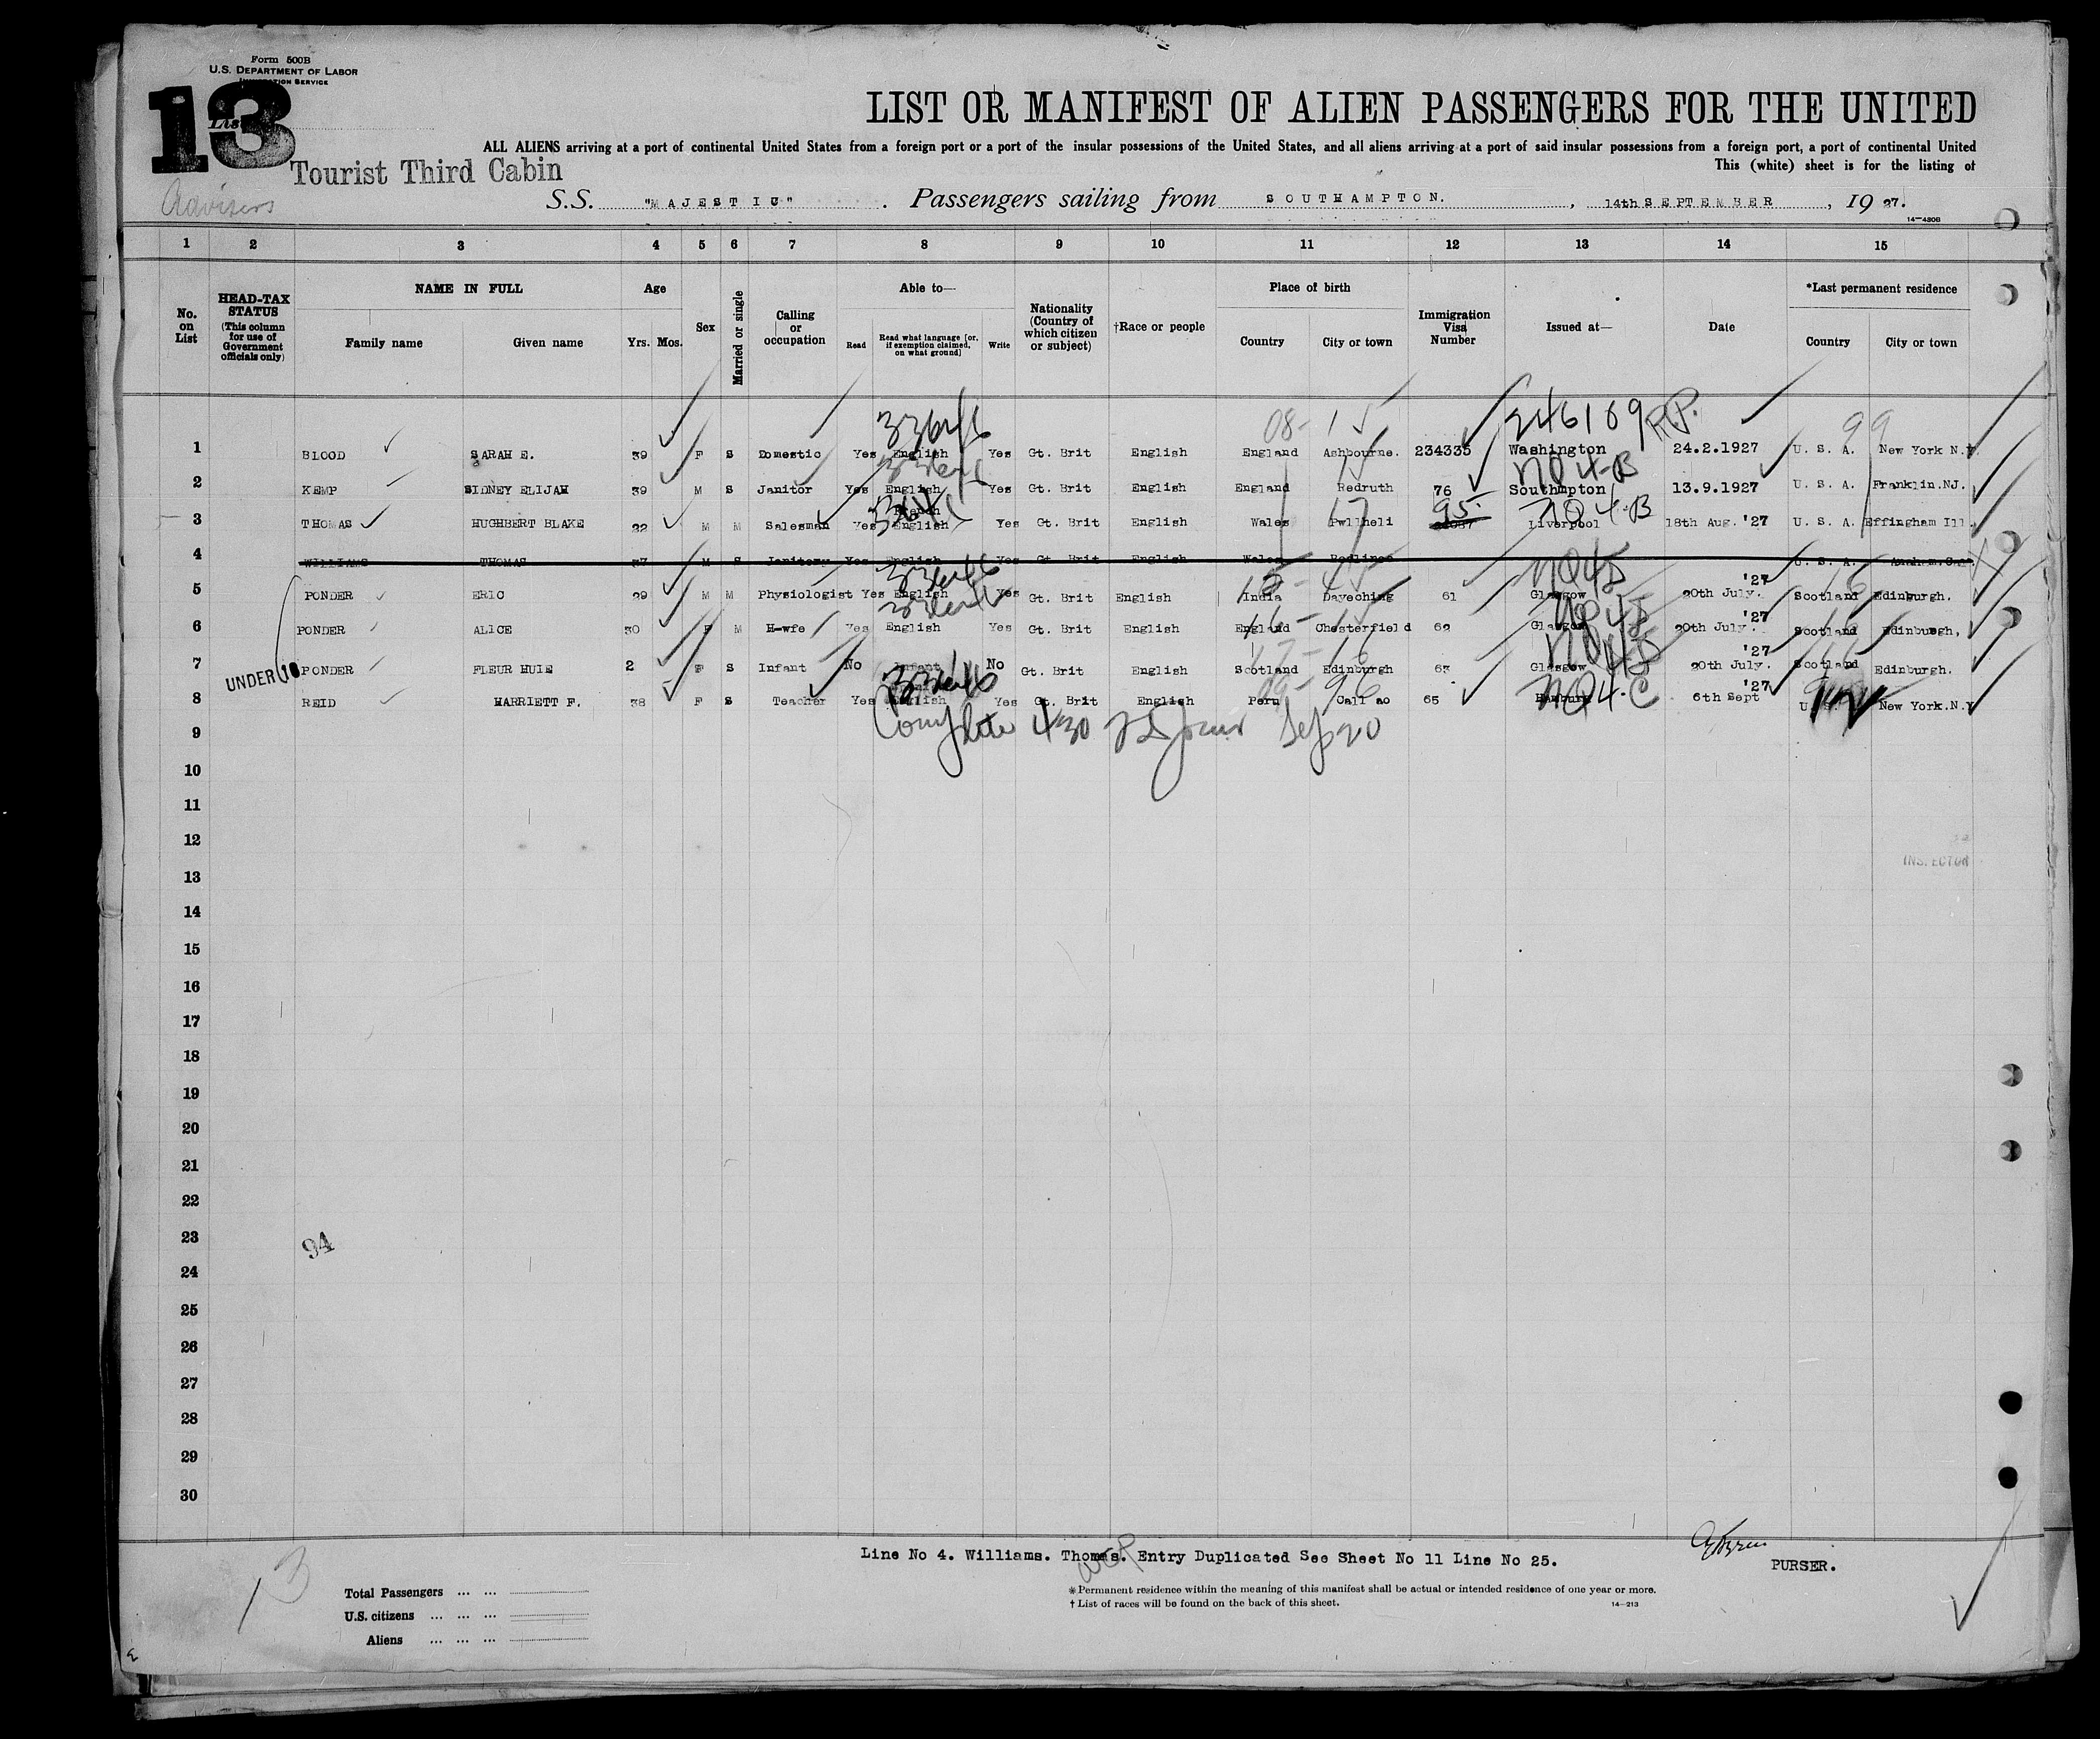 Form 500B
U.S. DEPARTMENT OF LABOR
IMMIGRATION SERVICE
13
List
Tourist Third Cabin
LIST OR MANIFEST OF ALIEN PASSENGERS FOR THE UNITED
ALL ALIENS arriving at a port of continental United States from a foreign port or a port of the insular possessions of the United States, and all aliens arriving at a port of said insular possessions from a foreign port, a port of continental United
This (white) sheet is for the listing of
Advisers
S.S. "MAJESTIC". Passengers sailing from SOUTHAMPTON., 14th SEPTEMBER, 19 27.
14-430B
1 2 3 4 5 6 7 8 9 10 11 12 13 14 15
No. on List
HEAD-TAX STATUS (This column for use of Government officials only)
NAME IN FULL Family name Given name
Age Yrs. Mos.
Sex
Married or single
Calling or occupation
Able to— Read Read what language [or, if exemption claimed, on what ground] Write
Nationality (Country of which citizen or subject)
†Race or people
Place of birth Country City or town
Immigration Visa Number
Issued at—
Date
*Last permanent residence Country City or town
33646 08- 15 246109 P.P. 99
1 BLOOD SARAH E. 39 F S Domestic Yes English Yes Gt. Brit English England Ashbourne. 234335 Washington 24.2.1927 U. S. A. New York N.Y
NQ4-B
2 KEMP SIDNEY ELIJAH 39 M S Janitor Yes English Yes Gt. Brit English England Redruth 76 Southmpton 13.9.1927 U. S. A. Franklin.NJ.
95. NQ4-B
3 THOMAS HUGHBERT BLAKE 22 M M Salesman Yes French English Yes Gt. Brit English Wales Pwllheli Liverpool 18th Aug. '27 U. S. A. Effingham Ill.
4 WILLIAMS THOMAS 37 M S Janitory Yes English Yes Gt. Brit English Wales U. S. A.
5 PONDER ERIC 29 M M Physiologist Yes English Yes Gt. Brit English India Dayeching 61 Glasgow 20th July. '27 Scotland Edinburgh.
6 PONDER ALICE 30 F M H-wfe Yes English Yes Gt. Brit English England Chesterfield 62 Glasgow 20th July. '27 Scotland Edinburgh,
UNDER 16
7 PONDER FLEUR HUIE 2 F S Infant No Infant No Gt. Brit English Scotland Edinburgh 63 Glasgow 20th July. '27 Scotland Edinburgh.
33646 NQ4-C
8 REID HARRIETT F. 38 F S Teacher Yes English Yes Gt. Brit English Peru Callao 65 Hamburg 6th Sept '27 U. S. New York.N.Y
Complete 430 Sep 20
9
10
11
12
13
INSPECTOR
14
15
16
17
18
19
20
21
22
23
94
24
25
26
27
28
29
30
Line No 4. Williams. Thomas. Entry Duplicated See Sheet No 11 Line No 25.
PURSER.
13
Total Passengers ... ...
U.S. citizens ... ... ...
Aliens ... ... ...
* Permanent residence within the meaning of this manifest shall be actual or intended residence of one year or more.
† List of races will be found on the back of this sheet.
14-213